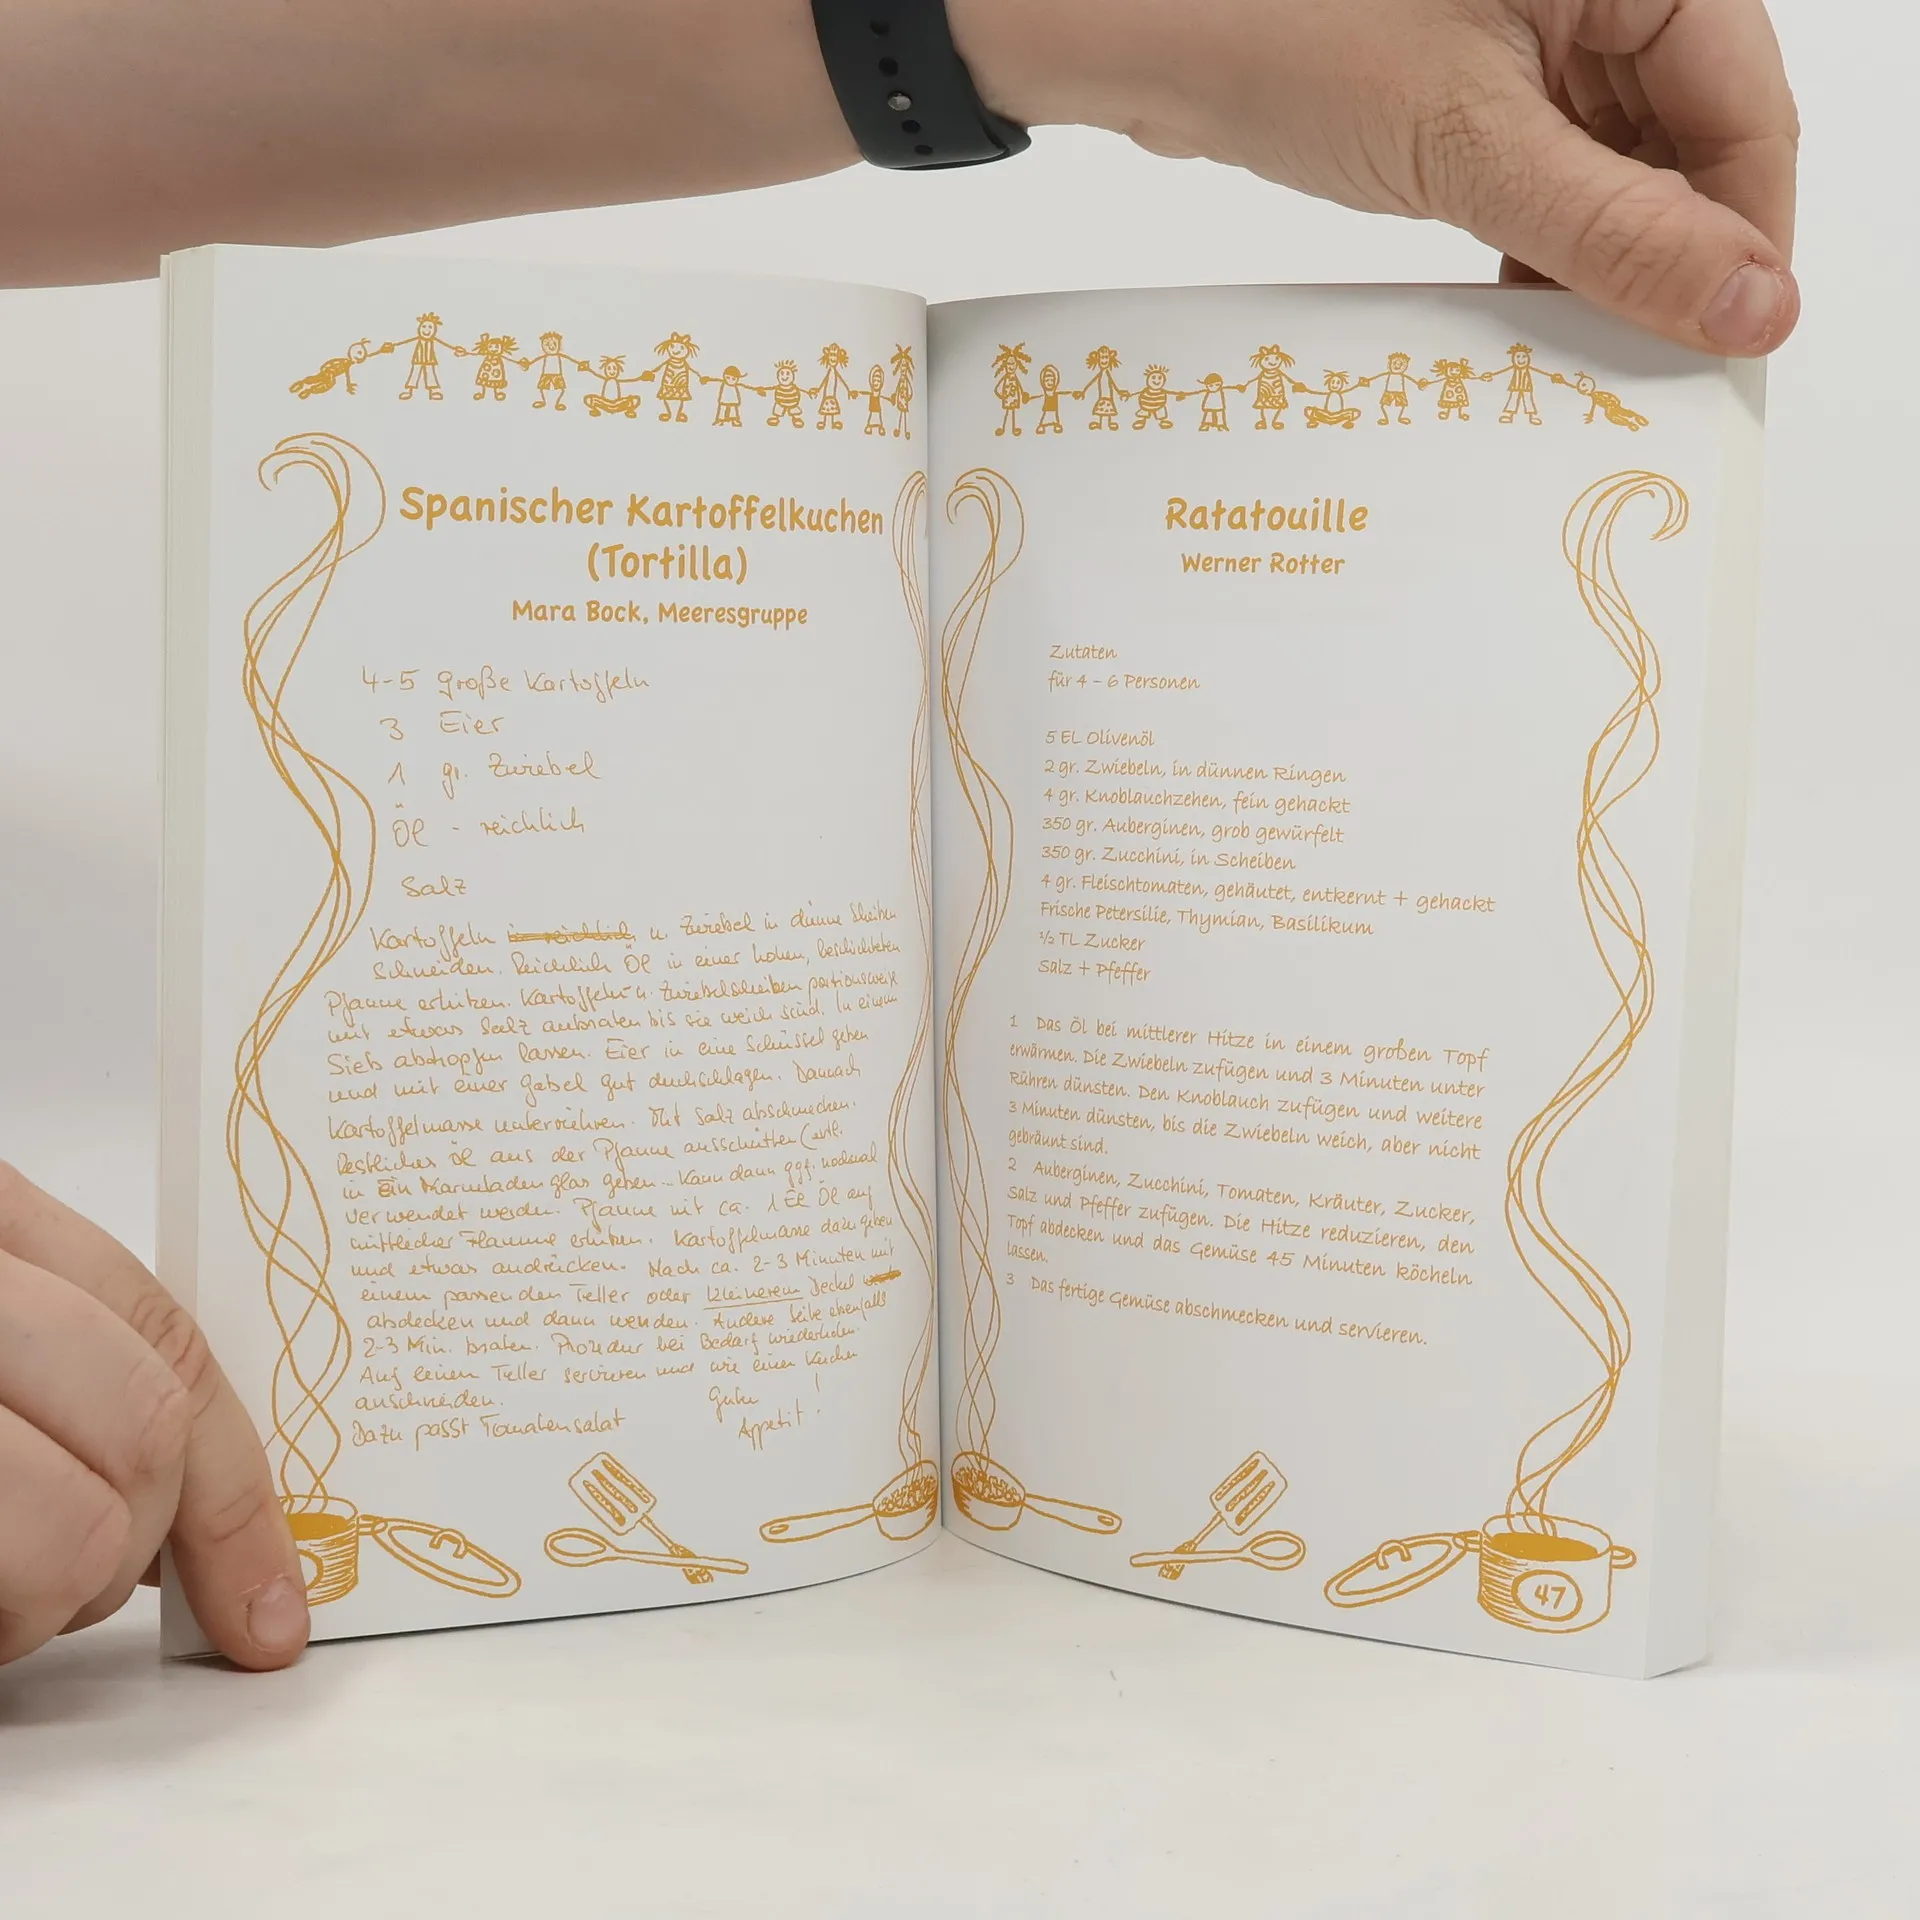 Spanischer Kartoffelkuchen
(Tortilla)
Mara Bock, Meeresgruppe
4-5 große Kartoffeln
3 Eier
1 gr. Zwiebel
Öl - reichlich
Salz
Kartoffeln u. Zwiebel in dünne Scheiben
schneiden. Reichlich Öl in einer hohen, beschichteten
Pfanne erhitzen. Kartoffeln u. Zwiebelscheiben portionsweise
mit etwas Salz anbraten bis sie weich sind. In einem
Sieb abtropfen lassen. Eier in eine Schüssel geben
und mit einer Gabel gut durchschlagen. Danach
Kartoffelmasse unterrühren. Mit Salz abschmecken.
Restliches Öl aus der Pfanne ausschütten (evtl.
in Ein Marmeladenglas geben.. Kann dann ggf. nochmal
verwendet werden. Pfanne mit ca. 1 EL Öl auf
mittlerer Flamme erhitzen. Kartoffelmasse dazu geben
und etwas andrücken. Nach ca. 2-3 Minuten mit
einem passenden Teller oder kleinerem Deckel
abdecken und dann wenden. Andere Seite ebenfalls
2-3 Min. braten. Prozedur bei Bedarf wiederholen.
Auf einen Teller servieren und wie einen Kuchen
anschneiden.
Dazu passt Tomatensalat
Guten
Appetit!
Ratatouille
Werner Rotter
Zutaten
für 4 – 6 Personen
5 EL Olivenöl
2 gr. Zwiebeln, in dünnen Ringen
4 gr. Knoblauchzehen, fein gehackt
350 gr. Auberginen, grob gewürfelt
350 gr. Zucchini, in Scheiben
4 gr. Fleischtomaten, gehäutet, entkernt + gehackt
Frische Petersilie, Thymian, Basilikum
½ TL Zucker
Salz + Pfeffer
1 Das Öl bei mittlerer Hitze in einem großen Topf
erwärmen. Die Zwiebeln zufügen und 3 Minuten unter
Rühren dünsten. Den Knoblauch zufügen und weitere
3 Minuten dünsten, bis die Zwiebeln weich, aber nicht
gebräunt sind.
2 Auberginen, Zucchini, Tomaten, Kräuter, Zucker,
Salz und Pfeffer zufügen. Die Hitze reduzieren, den
Topf abdecken und das Gemüse 45 Minuten köcheln
lassen.
3 Das fertige Gemüse abschmecken und servieren.
47